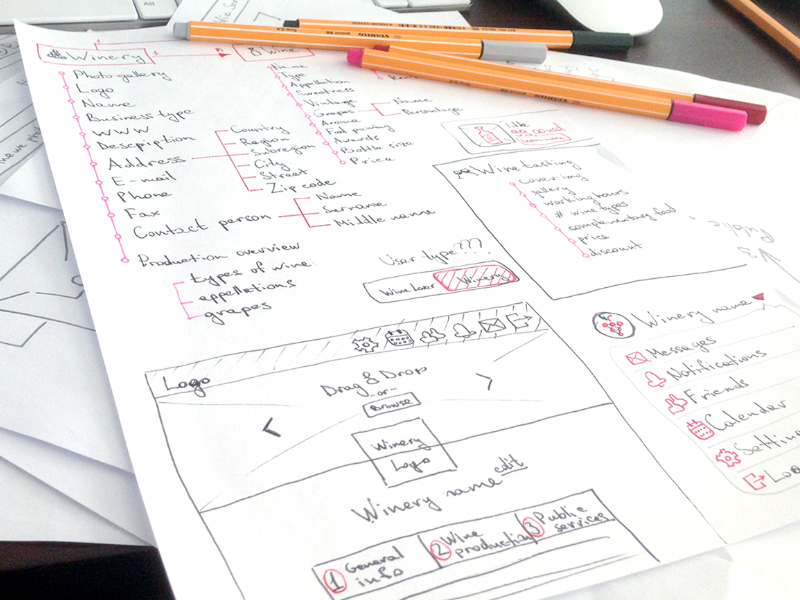 Winery
1
n
Wine
Photo gallery
Logo
Name
Business type
WWW
Description
Address
Country
Region
Subregion
City
Street
Zip code
E-mail
Phone
Fax
Contact person
Name
Sername
Middle name
Production overview
types of wine
appellations
grapes
Name
Type
Appellation
Sweetness
Vintage
Grapes
Name
Percentage
Aroma
Food pairing
Awards
Bottle size
Price
STABILO
Wine tasting
cover img
gallery
working hours
# wine types
complementary food
price
discount
User type???
Wine lover
Winery
Public
V3
Logo
Drag & Drop
-or-
Browse
Winery
Logo
Winery name
edit
1 General
info
2 Wine
production
3 Public
services
Winery name
Messages
Notifications
Friends
Calendar
Settin
Lo